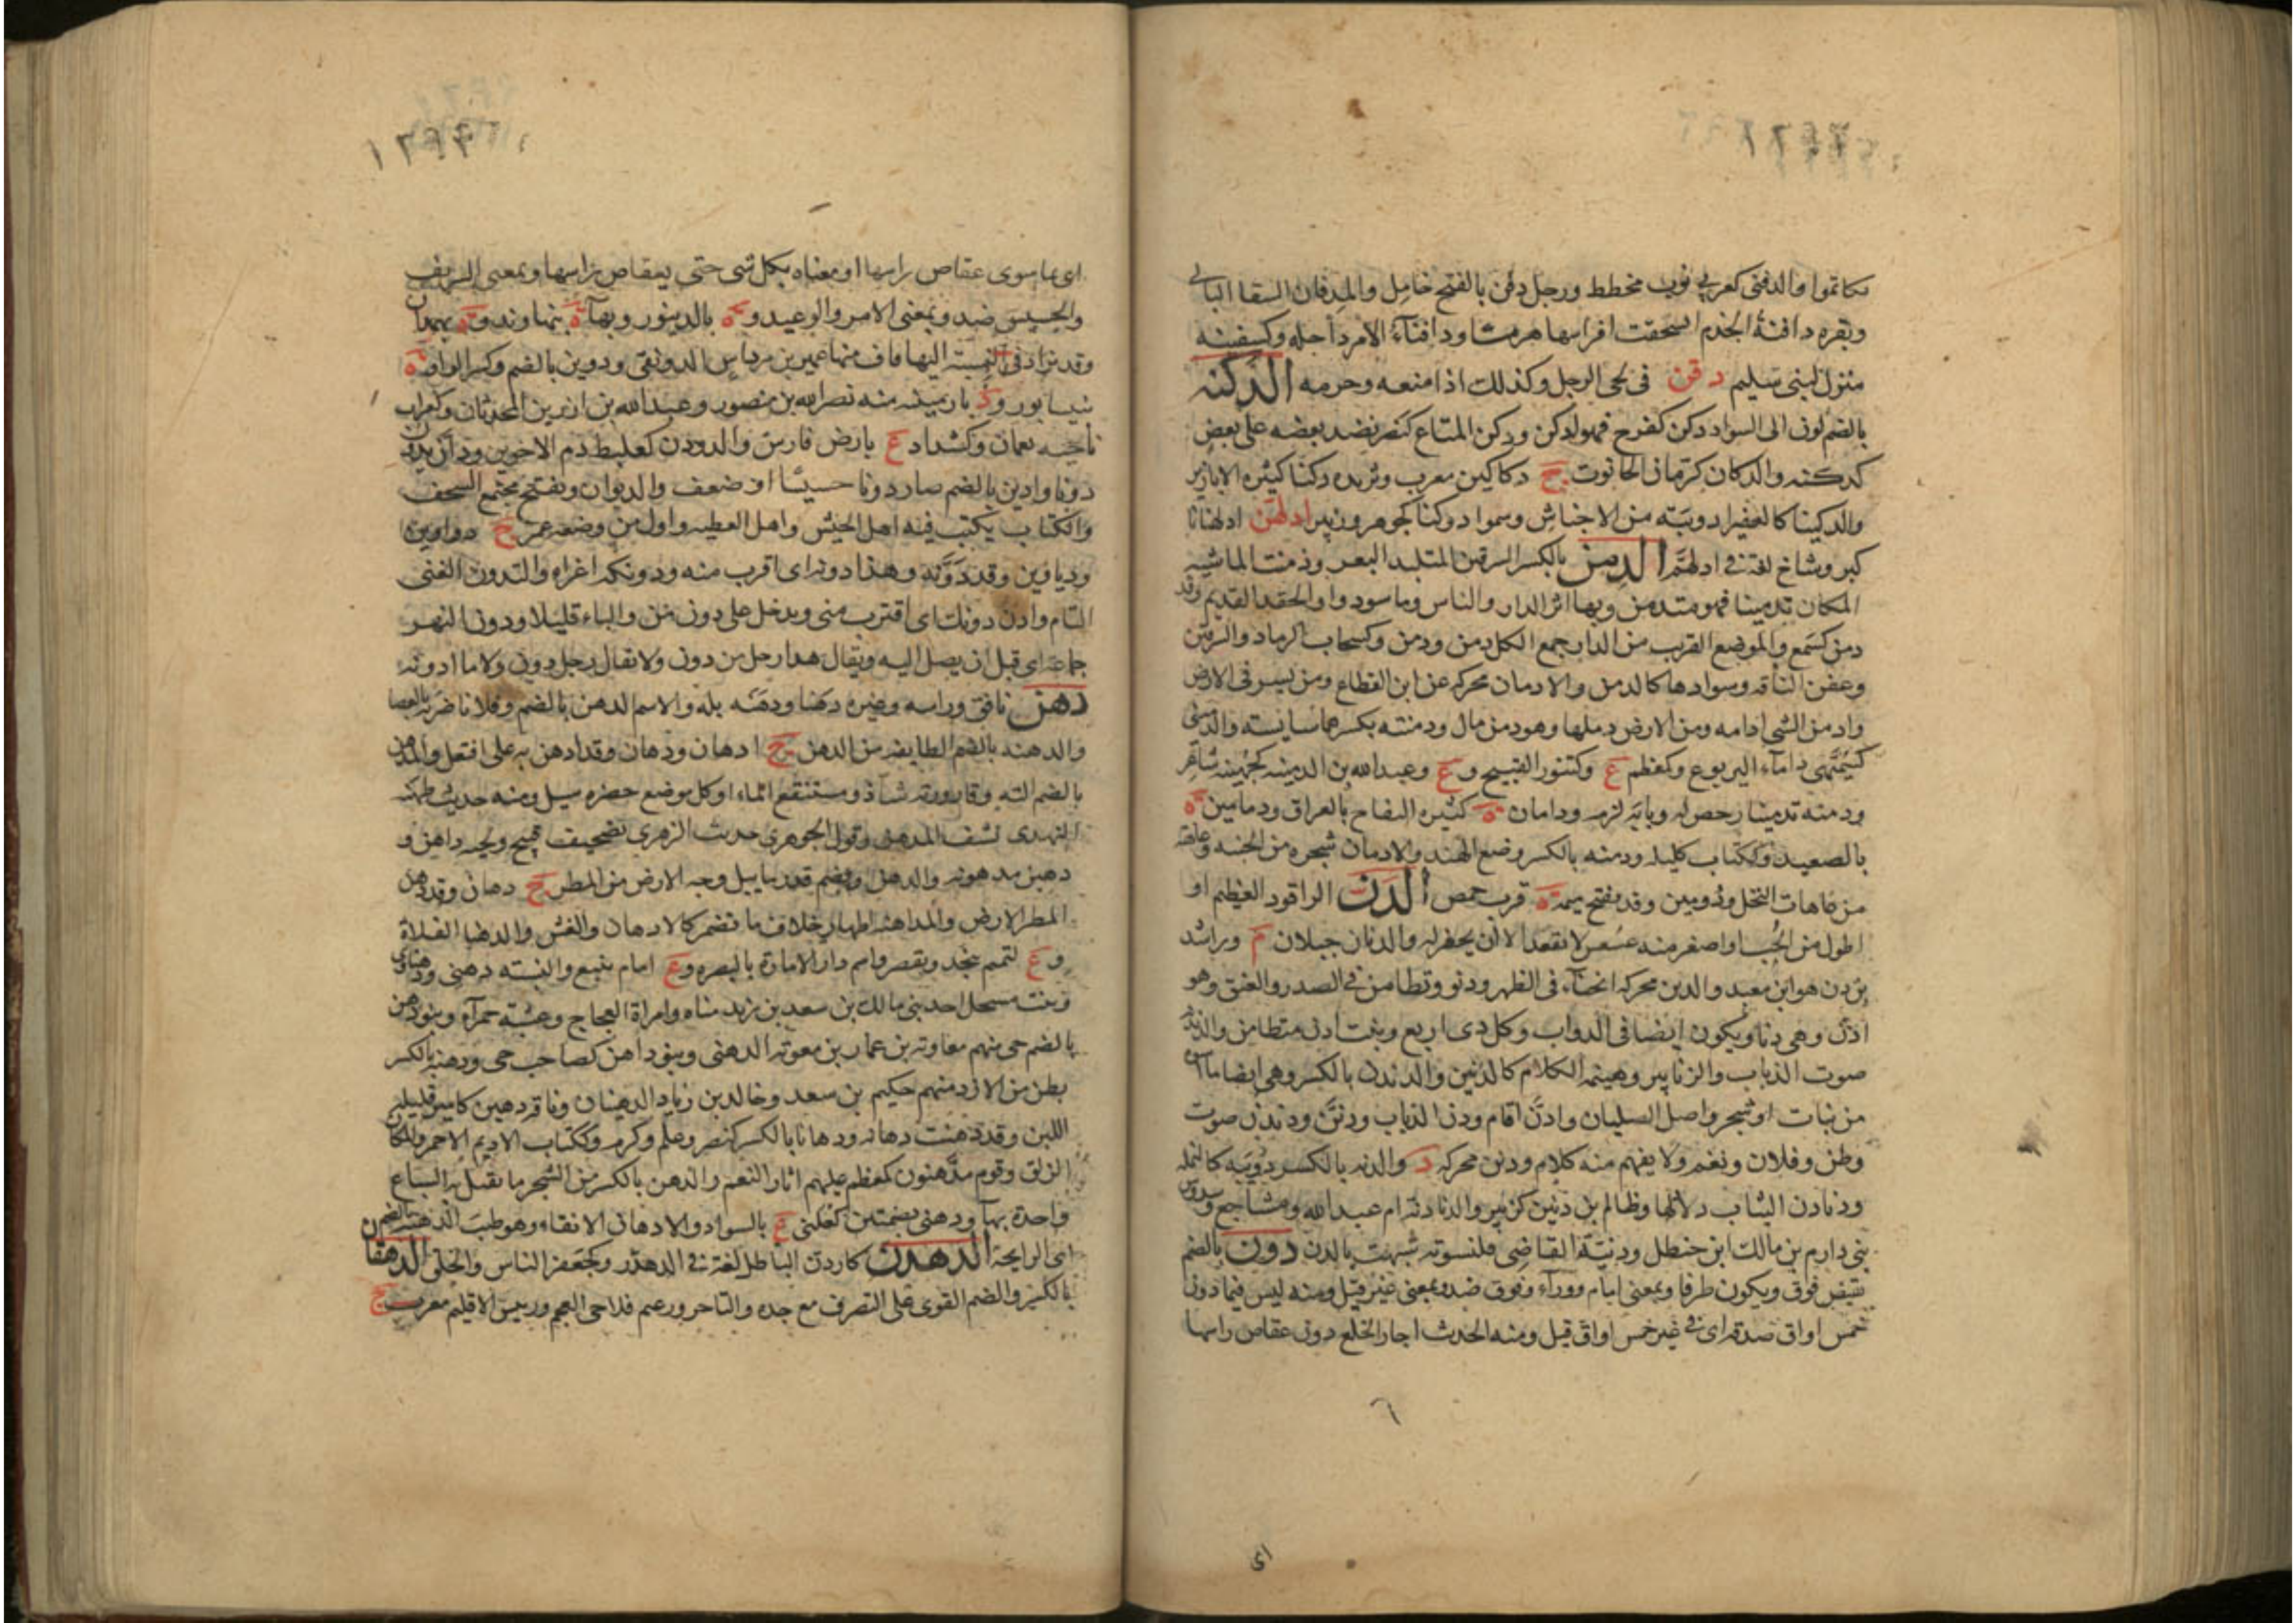 تكاتموا والدفنى كعربي ثوب مخطط ورجل دفن بالفتح خامل والمدفان السقا البالي
وبقره دافنة الجذم انسحقت اضراسها هرما ودافناء الامر داخله وكسفينه
منزل لبنى سليم دقن فى لحى الرجل وكذلك اذا منعه وحرمه الدكنه
بالضم لون الى السواد دكن كفرح فهو ادكن ودكن المتاع كنصر نضد بعضه على بعض
كدكنه والدكان كرمان الحانوت ج دكاكين معرب وثريده دكنا كثيره الابازير
والدكينا كالغفيرا دويبة من الاحناش وسموا دوكنا كجوهر وزبير ادلهن ادلهنانا
كبر وشاخ لغة فى ادلهم الدمن بالكسر السرقين المتلبد البعر ودمنت الماشيه
المكان تدمينا فهو متدمن وبها اثر الدار والناس وما سودوا والحقد القديم وقد
دمن كسمع والموضع القريب من الدار جمع الكل دمن ودمن وكسحاب الرماد والسرقين
وعفن النخلة وسوادها كالدمن والادمان محركه عن ابن القطاع ومن يسرقن الارض
وادمن الشى ادامه ودمن الارض دملها وهو دمن مال ودمنته بكسرهما سايسه والدمنى
كسمهى داماء اليربوع وكمعظم ع وكتنور القبيح و ع وعبدالله بن الدمينه كجهينه شاعر
ودمنه تدمينا رخص له وبابه لزمه ودامان ة كثيره التفاح بالعراق ودمامين ة
بالصعيد وككتاب كليله ودمنه بالكسر وضع الهند والادمان شجره من الجنبه وعاهة
من عاهات النخل وذومين وقد يفتح ميمه ة قرب حمص الدن الراقود العظيم او
اطول من الحب او اصغر منه عسعس لا يقعد الا ان يحفر له والدنان جبلان م وراشد
بن دن هو ابن معبد والدنن محركه انحناء فى الظهر ودنو وتطامن فى الصدر والعنق وهو
ادن وهى دنا ويكون ايضا فى الدواب وكل ذى اربع وبيت ادن متطامن والدندنه
صوت الذباب والزنابير وهينمه الكلام كالدنين والدندن بالكسر وهى ايضا ما اسود
من نبات او شجر واصل الصليان وادن اقام ودن الذباب ودنن ودندن صوت
وطن وفلان ونغم ولا يفهم منه كلام ودنن محركه د والدنه بالكسر دويبه كالنمله
ودنادن الثياب ذلاذلها وظالم بن دنين كزبير والدنادنه ام عبدالله ومشاجع وسدوس
بنى دارم بن مالك ابن حنظل ودنية القاضى قلنسوته شبهت بالدن دون بالضم
نقيض فوق ويكون ظرفا وبمعنى امام ووراء وفوق ضد وبمعنى غير قيل ومنه ليس فيما دون
خمس اواق صدقه اى فى غير خمس اواق قيل ومنه الحديث اجاز الخلع دون عقاص راسها
٦
اى
اى بما سوى عقاص راسها او معناه بكل شى حتى بعقاص راسها وبمعنى الشريف
والخسيس ضد وبمعنى الامر والوعيد و ة بالدينور وبهاء ة بنهاوند و ة بهمدان
وقد تزاد فى النسبة اليها قاف منها عمير بن مرداس الدونقى ودوين بالضم وكسر الواو ة
نيسابور و د بارمينيه منه نصرالله بن منصور وعبدالله بن المحدثان وكغراب
ناحيه بعمان وكشداد ع بارض فارس والدودن كعلبط دم الاخوين ودان يدون
دونا وادين بالضم صار دونا خسيسا او ضعف والديوان ويفتح مجتمع الصحف
والكتاب يكتب فيه اهل الجيش واهل العطيه واول من وضعه عمر ج دواوين
ودياوين وقد دونه وهذا دونه اى اقرب منه ودونكه اغراء والتدون الغنى
التام وادن دونك اى اقترب منى ويدخل على دون من والباء قليلا ودون النهر
جماعه اى قبل ان يصل اليه ويقال هذا رجل من دون ولا يقال رجل دون ولا ما ادونه
دهن نافق وراسه وغيره دهنا ودهنه بله والاسم الدهن بالضم وفلانا ضربه بالعصا
والدهنه بالضم الطايفه من الدهن ج ادهان ودهان وقد ادهن به على افتعل والمدهن
بالضم الته وقارورته شاذ ومستنقع الماء او كل موضع حفره سيل ومنه حديث طهفه
النهدى نشف المدهن وقول الجوهرى حديث الزهرى تصحيف قبيح ولحيه داهن و
دهين مدهونه والدهن ويضم قدر ما يبل وجه الارض من المطر ج دهان وقد دهن
المطر الارض والمداهنه اظهار خلاف ما تضمر كالادهان والغش والدهنا الفلاة
و ع لتميم بنجد ويقصر واسم دار الاماره بالبصره و ع امام ينبع والنسبه دهنى ودهناوى
وبنت مسحل احد بنى مالك بن سعد بن زيد مناه وامراة العجاج وعشبة حمراء وبنو دهن
بالضم حى منهم معاويه بن عمار بن معوية الدهنى وبنو داهن كصاحب حى ودهنه بالكسر
بطن من الازد منهم حكيم بن سعد وخالد بن زياد الدهنيان وناقه دهين كامير قليله
اللبن وقد دهنت دهانه ودهانا بالكسر كنصر وعلم وكرم وككتاب الاديم الاحمر والمكان
الزلق وقوم مدهنون كمعظم عليهم اثار النعم والدهن بالكسر من الشجر ما يقتل به السباع
واحده بهاء ودهنى بضمتين كغلبى ع بالسواد والادهان الانقاء وهو طيب الدهنه بالضم
اى الرايحة الدهدن كاردن الباطل لغة فى الدهدر وكجعفر الناس والخلق الدهقان
بالكسر والضم القوى على التصرف مع حده والتاجر وزعيم فلاحى العجم ورييس الاقليم معرب ج